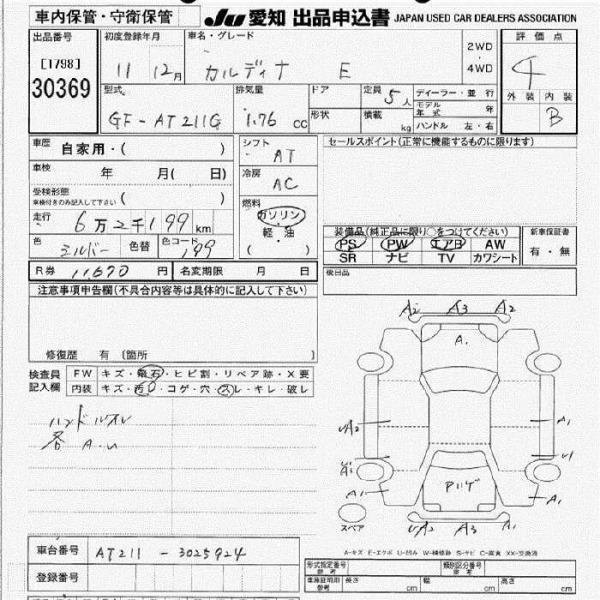 車内保管・守衛保管 JU 愛知 出品申込書 JAPAN USED CAR DEALERS ASSOCIATION
出品番号 初度登録年月 車名・グレード 2WD 評価点
[1798] 11 12月 カルディナ E 4WD 4
30369 型式 排気量 ドア 定員 5人 ディーラー・並行 外装 内装
GF-AT211G 1.76 cc 形状 積載 kg モデル年式 年 B
ハンドル 左・右
車歴 自家用・( ) シフト AT セールスポイント(正常に機能するものに限ります)
車検 年 月( 日) 冷房 AC
受検形態 車検付きのみ記入して下さい ( ) 燃料
走行 6万2千199km ガソリン 装備品(純正品に限り○をつけてください) 新車保証書
色 シルバー 色替 色コード 199 軽・油 PS PW エアB AW 有・無
( ) SR ナビ TV カワシート
R券 11,670円 名変期限 月 日 検日品
注意事項申告欄(不具合内容等は具体的に記入して下さい)
修復歴 有 (箇所
検査員 FW キズ・飛石・ヒビ割・リペア跡・X要
記入欄 内装 キズ・汚レ・コゲ・穴・スレ・キレ・破レ
ハンドルスレ
各 A.U
A2 A3 A2
A.
UA2 A1
U1
A1 A1
スペア UA2 A3 A1
車台番号 AT211 - 3025924
登録番号
A-キズ E-エクボ U-凹み W-補修跡 S-サビ C-腐食 XX-交換済
形式指定番号 参考 類別区分番号 参考
車庫証明用 参考 長さ cm 幅 cm 高さ cm